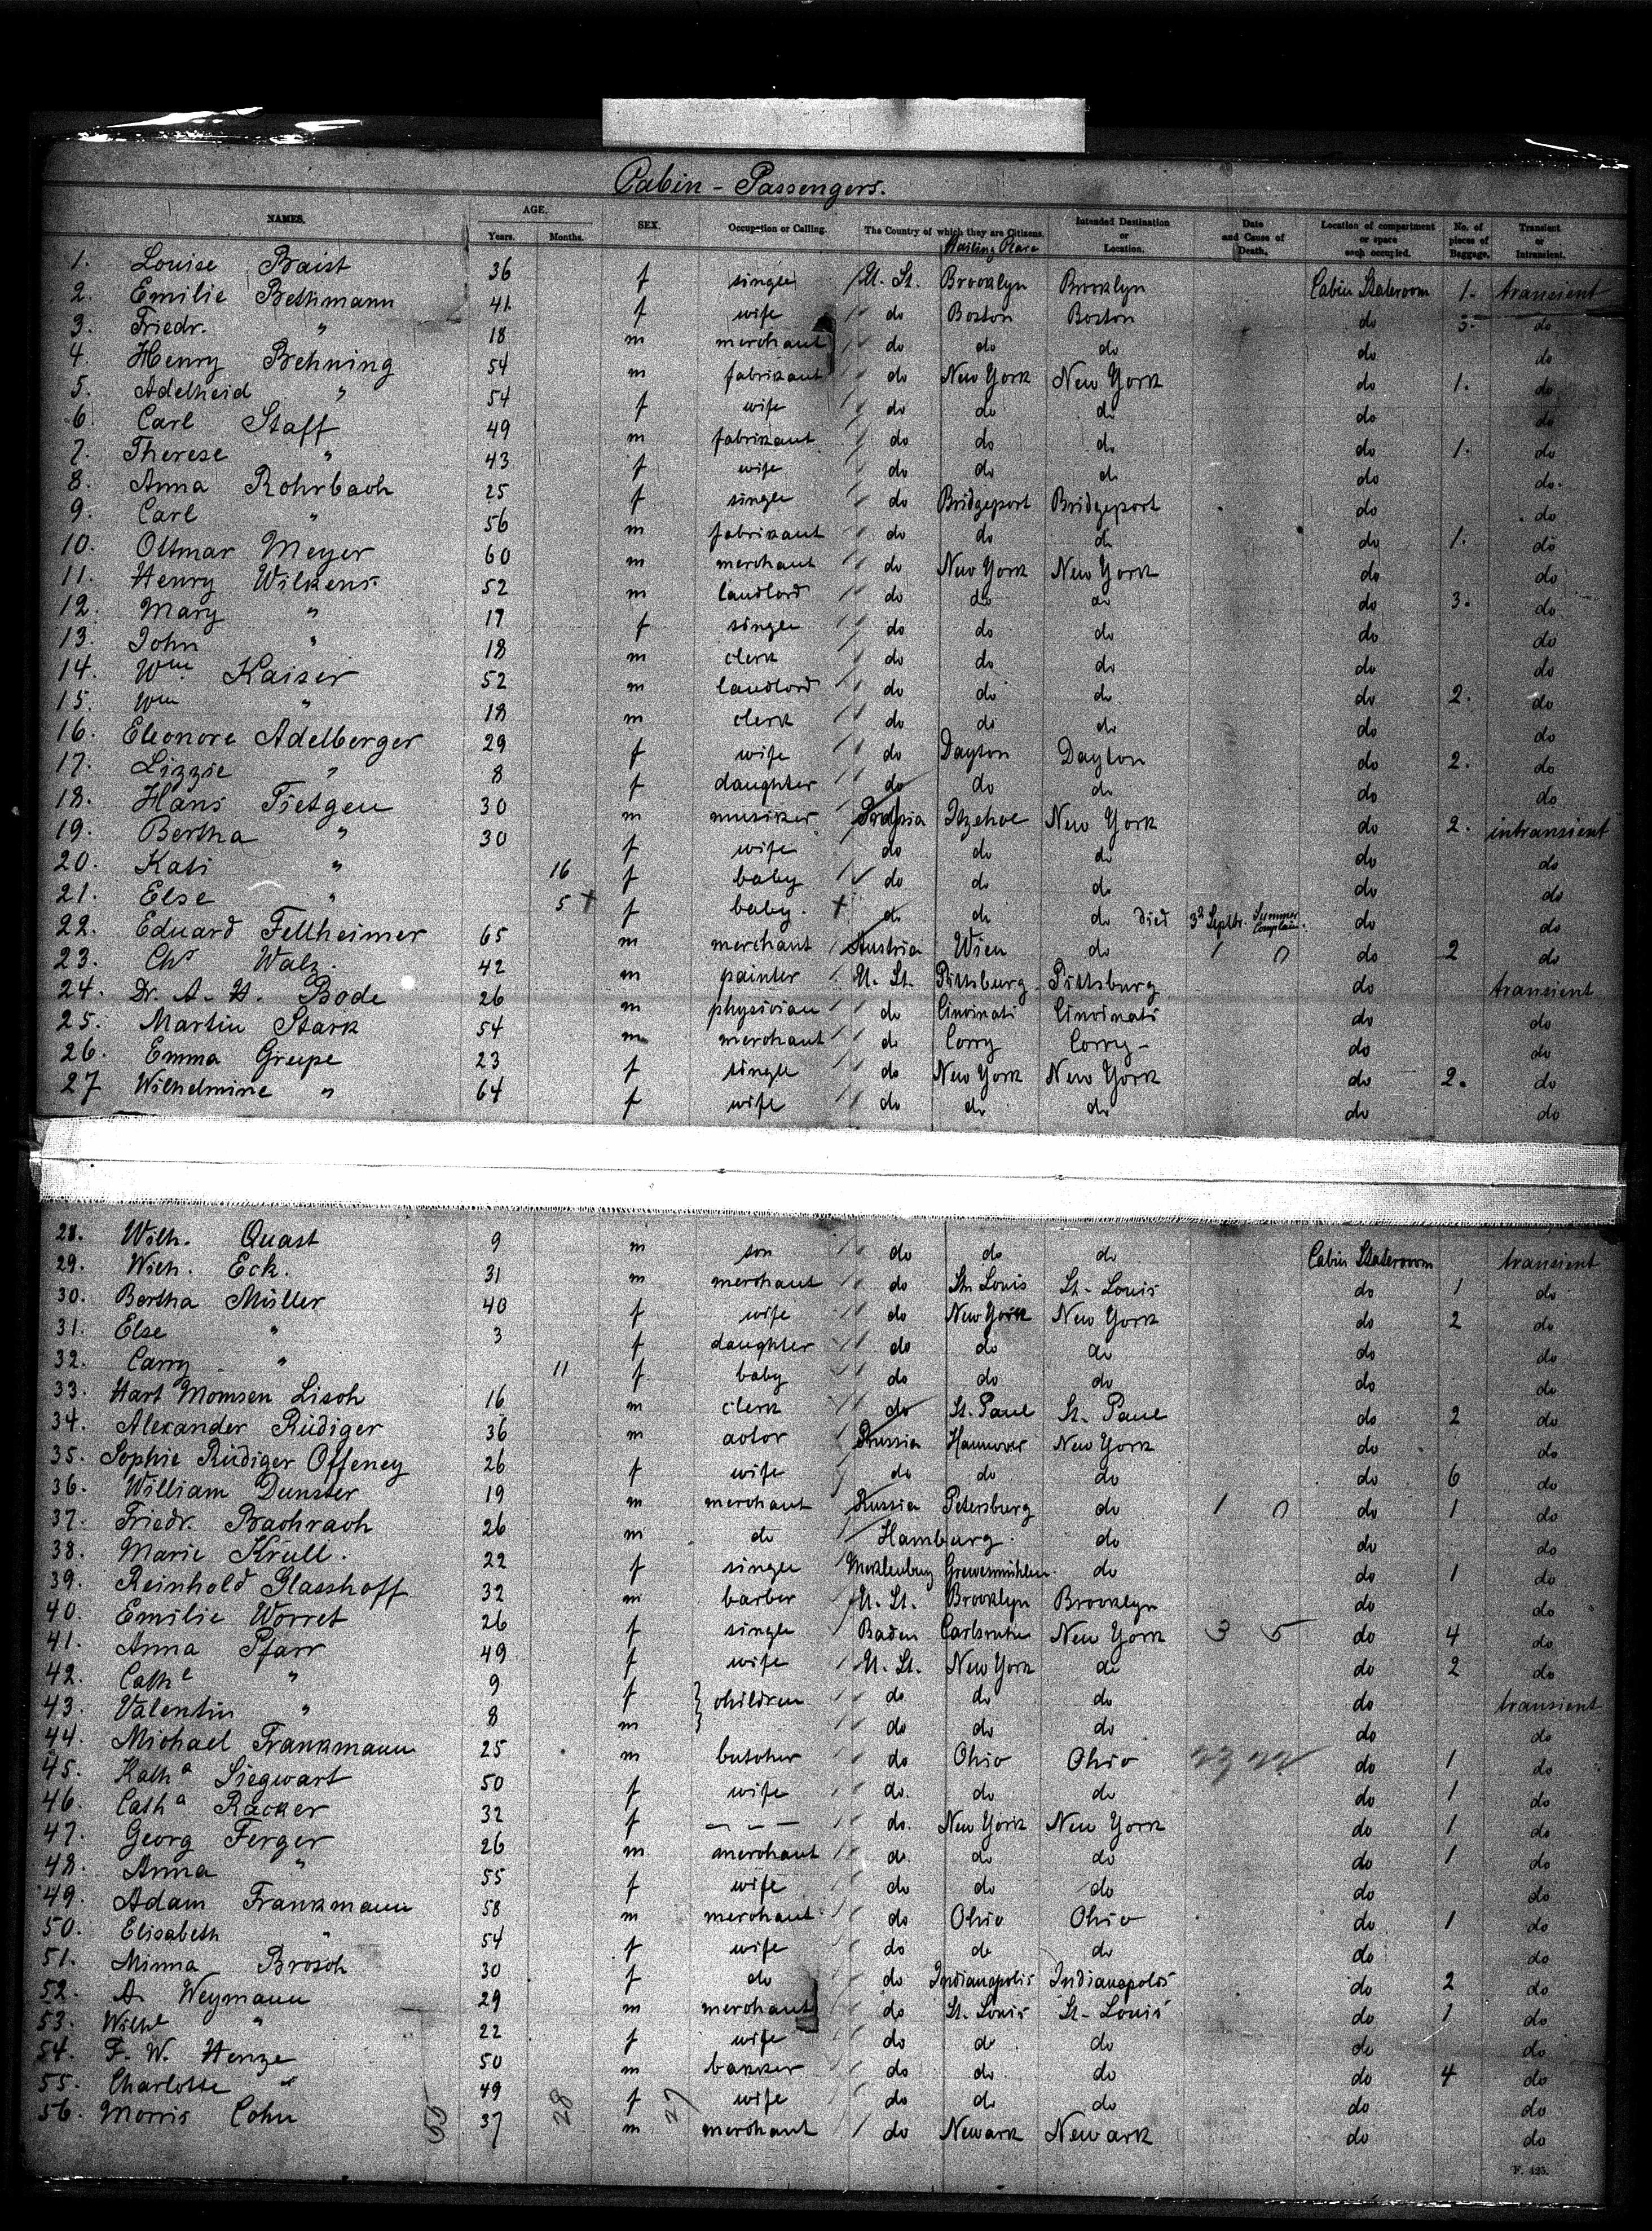 Cabin - Passengers.
NAMES. AGE. Years. Months. SEX. Occupation or Calling. The Country of which they are Citizens. Mailing Place Intended Destination or Location. Date and Cause of Death. Location of compartment or space each occupied. No. of pieces of Baggage. Transient or Intransient.
1. Louise Braist 36 f single U. St. Brooklyn Brooklyn Cabin Stateroom 1. transient
2. Emilie Bethmann 41 f wife do Boston Boston do 3. do
3. Friedr. " 18 m merchant do do do do do
4. Henry Behning 54 m fabrikant do New York New York do 1. do
5. Adelheid " 54 f wife do do do do do
6. Carl Staff 49 m fabrikant do do do do 1. do
7. Therese " 43 f wife do do do do do
8. Anna Rohrbach 25 f single do Bridgeport Bridgeport do do
9. Carl " 56 m fabrikant do do do do 1. do
10. Ottmar Meyer 60 m merchant do New York New York do do
11. Henry Wilkens 52 m landlord do do do do 3. do
12. Mary " 19 f single do do do do do
13. John " 18 m clerk do do do do do
14. Wm. Kaiser 52 m landlord do do do do 2. do
15. Wm " 18 m clerk do do do do do
16. Eleonore Adelberger 29 f wife do Dayton Dayton do 2. do
17. Lizzie " 8 f daughter do do do do do
18. Hans Tietgen 30 m musiker Prussia Itzehoe New York do 2. intransient
19. Bertha " 30 f wife do do do do do
20. Kati " 16 f baby do do do do do
21. Else " 5 + f baby. + do do do died 3d Septbr. Summer Complain. do do
22. Eduard Fellheimer 65 m merchant Austria Wien do 1 0 do 2 do
23. Chs Walz. 42 m painter U. St. Pittsburg Pittsburg do transient
24. Dr. A. H. Bode 26 m physician do Cincinati Cincinati do do
25. Martin Stark 54 m merchant do Corry Corry - do do
26. Emma Greepe 23 f single do New York New York do 2. do
27 Wilhelmine " 64 f wife do do do do do
28. Wilh. Quast 9 m son do do do Cabin Stateroom transient
29. Wilh. Eck. 31 m merchant do St. Louis St. Louis do 1 do
30. Bertha Müller 40 f wife do New York New York do 2 do
31. Else " 3 f daughter do do do do do
32. Carry " 11 f baby do do do do do
33. Hart Momsen Lisch 16 m clerk do St. Paul St. Paul do 2 do
34. Alexander Rüdiger 36 m actor Prussia Hannover New York do do
35. Sophie Rüdiger Offeney 26 f wife do do do do 6 do
36. William Dunster 19 m merchant Russia Petersburg do 1 0 do 1 do
37. Friedr. Bachrach 26 m do Hamburg. do do do
38. Marie Krüll. 22 f single Mecklenburg Grevesmühlen. do do 1 do
39. Reinhold Glasshoff 32 m barber U. St. Brooklyn Brooklyn do do
40. Emilie Worret 26 f single Baden Carlsruhe New York 3 5 do 4 do
41. Anna Pfarr 49 f wife U. St. New York do do 2 do
42. Cathe " 9 f } children do do do do transient
43. Valentin " 8 m } do do do do do
44. Michael Frankmann 25 m butcher do Ohio Ohio do 1 do
45. Katha Siegwart 50 f wife do. do do do 1 do
46. Catha Racker 32 f - - - do. New York New York do 1 do
47. Georg Ferger 26 m merchant do. do do do 1 do
48. Anna " 55 f wife do do do do do
49. Adam Frankmann 58 m merchant do Ohio Ohio do 1 do
50. Elisabeth " 54 f wife do do do do do
51. Minna Brosch 30 f do do Indianapolis Indianapolis do 2 do
52. A. Weymann 29 m merchant do St. Louis St. Louis do 1 do
53. Wilhe " 22 f wife do do do do do
54. F. W. Henze 50 m bakker do do do do 4 do
55. Charlotte " 49 f wife do do do do do
56. Morris Cohn 37 m merchant do Newark Newark do do
55 28 27
F. 425.